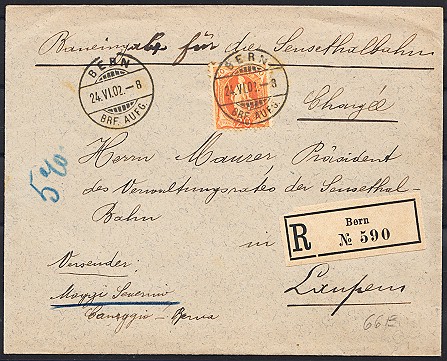 Baneingabe für die Sensethalbahn
BERN
24.VI.02.-8
BRF. AUFG.
BERN
24.VI.02.-8
BRF. AUFG.
Chargé
Herrn Maurer Präsident
des Verwaltungsrates der Sensethal-
Bahn
in
R
Bern
№ 590
Laupen
Versender:
Severino
Berna
66E